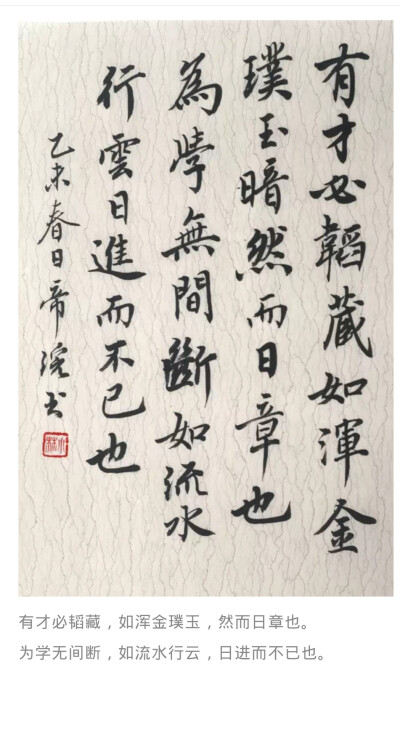 有才必韜藏如渾金
璞玉暗然而日章也
為學無間斷如流水
行雲日進而不已也
乙未春日帝浣书
有才必韬藏，如浑金璞玉，然而日章也。
为学无间断，如流水行云，日进而不已也。